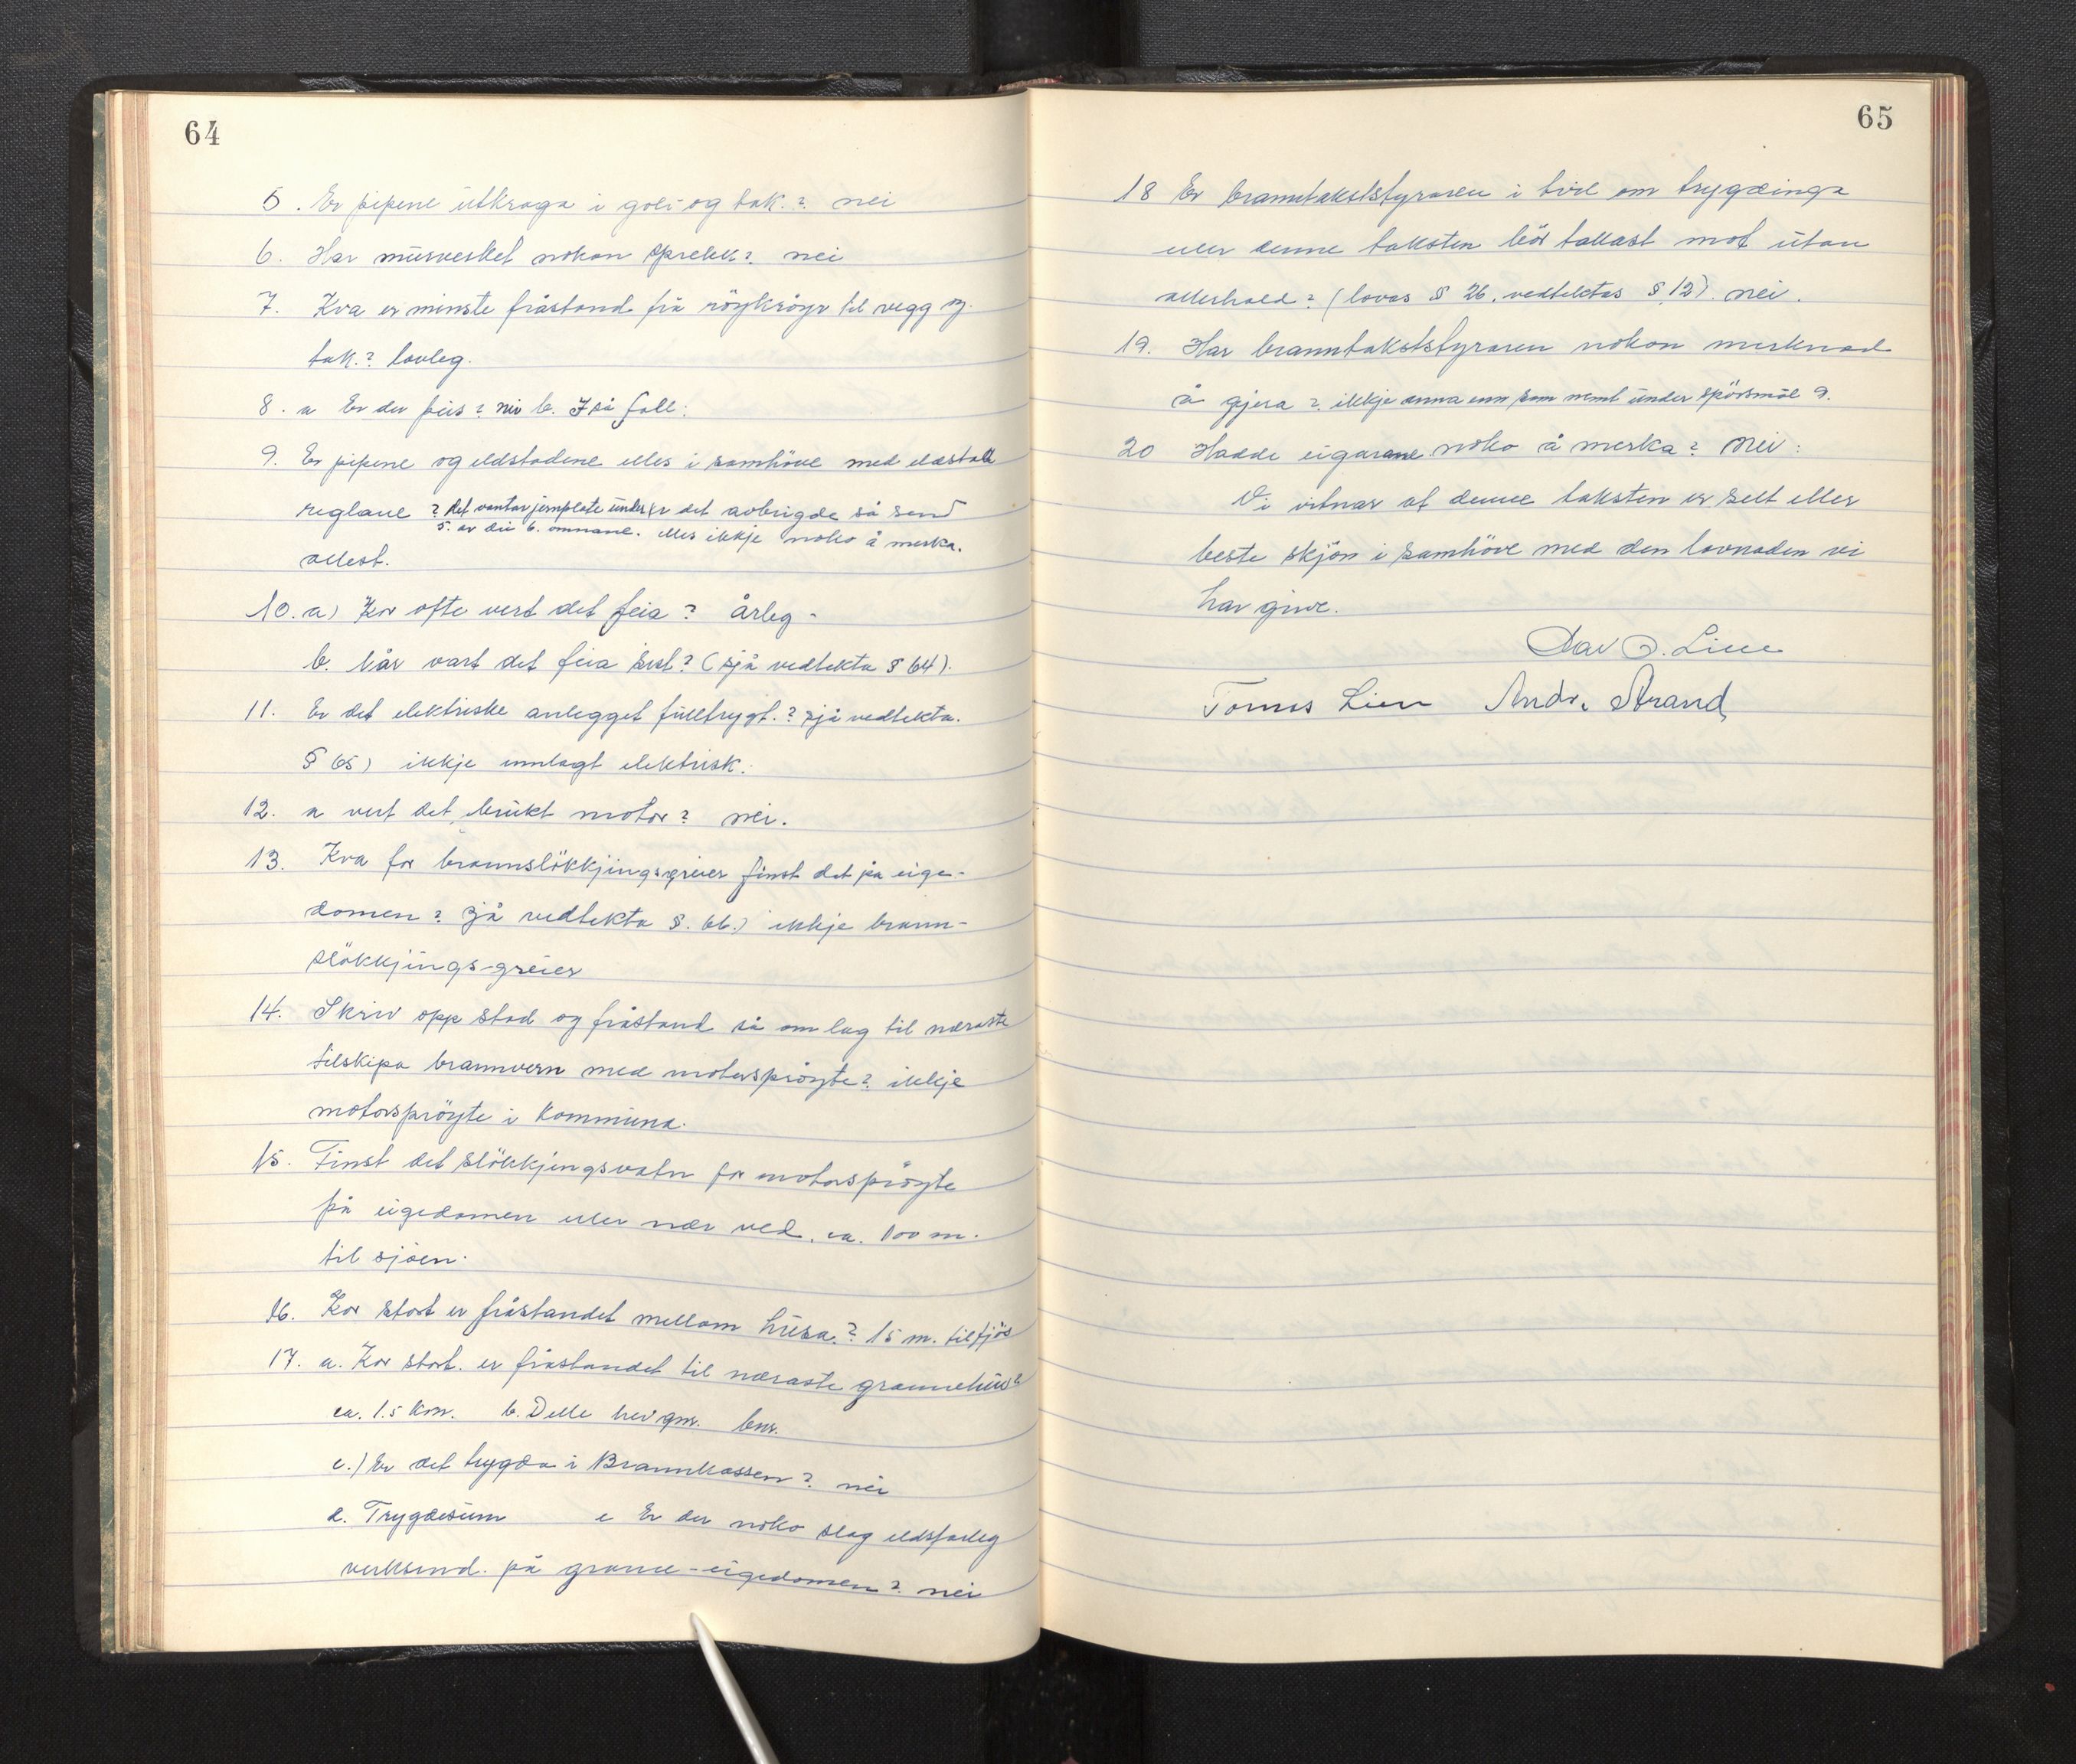 64
5. Er pipene utkraga i golv og tak.? nei
6. Har murverket nokon sprekk? nei
7. Kva er minste fråstand frå röykröyr til vegg og
tak.? lovleg.
8. a Er der peis? nei b. I så fall:
9. Er pipene og eldstadene elles i samhöve med eldstad
reglane ? det vantar jernplate under er det avbrigde så send
5. av dei 6. omnane. elles ikkje noko å merka.
attest.
10. a) Kor ofte vert det feia? årleg -
b. Når vart det feia sist? (sjå vedtekta § 64).
11. Er det elektriske anlegget fulltrygt.? sjå vedtekta.
§ 65) ikkje innlagt elektrisk.
12. a vert det brukt motor? nei.
13. Kva for brannslökkjingsgreier finst det på eige-
domen? sjå vedtekta §. 66.) ikkje brann-
slökkjings-greier
14. Skriv opp stad og fråstand så om lag til næraste
tilskipa brannvern med motorspröyte? ikkje
motorspröyte i kommuna.
15. Finst det slökkjingsvatn for motorspröyte
på eigedomen eller nær ved. ca. 100 m.
til sjöen.
16. Kor stort er fråstandet mellom husa.? 15 m. til fjös
17. a. Kor stort. er fråstandet til næraste grannehus?
ca. 1.5 km. b. Dette hev gnr. bnr.
c.) Er det trygda i Brannkassen? nei
d. Trygdesum e Er der noko slag eldsfarleg
verksemd. på granne-eigedomen? nei
65
18 Er branntakststyraren i tvil om trygdinga
eller denne taksten bör takast mot utan
atterhald? (lovas § 26. vedtektas § 12). nei.
19. Har branntakststyraren nokon merknad
å gjera? ikkje anna enn som nemt under spörsmål 9.
20 Hadde eigarane noko å merka? Nei:
Vi vitnar at denne taksten er sett etter
beste skjön i samhöve med den lovnaden vi
har give.
Olav O. Lien
Tomas Lien Andr. Strand